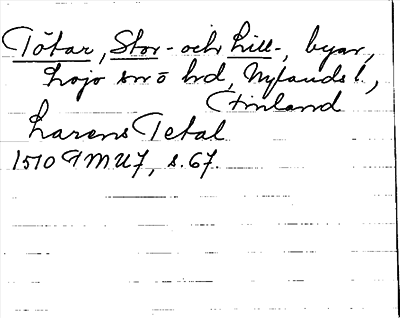 Tötar, Stor- och Lill-, byar,
Lojo snö hd, Nylands l.,
Finland
Larens Tetal
1510 FMU7, s. 67.